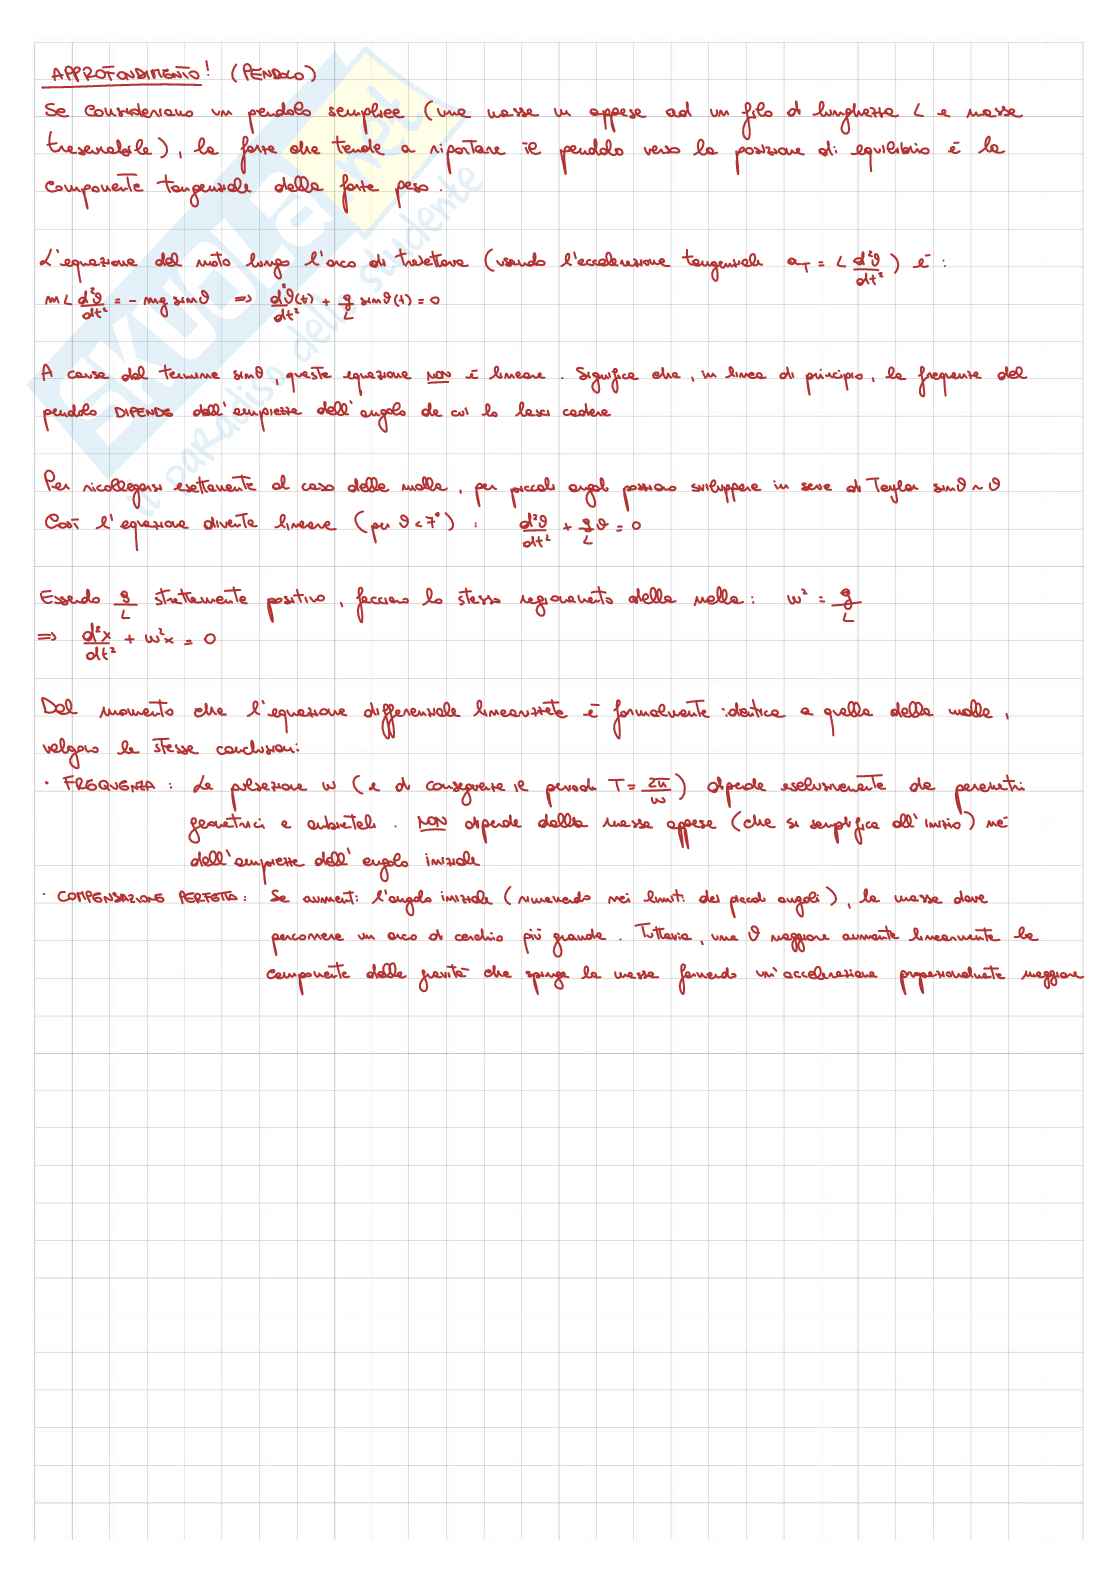 APPROFONDIMENTO! (PENDOLO)
Se consideriamo un pendolo semplice (una massa m appesa ad un filo di lunghezza L e massa
trascurabile), la forza che tende a riportare il pendolo verso la posizione di equilibrio è la
componente tangenziale della forza peso.
L'equazione del moto lungo l'arco di traiettoria (usando l'accelerazione tangenziale a_T = L d²ϑ/dt²) è:
m L d²ϑ/dt² = - mg sinϑ ⇒ d²ϑ(t)/dt² + g/L sinϑ(t) = 0
A causa del termine sinϑ, questa equazione NON è lineare. Significa che, in linea di principio, la frequenza del
pendolo DIPENDE dall'ampiezza dell'angolo da cui lo lasci cadere
Per ricollegarsi esattamente al caso della molla, per piccoli angoli possiamo sviluppare in serie di Taylor sinϑ ~ ϑ
Così l'equazione diventa lineare (per ϑ < 7°): d²ϑ/dt² + g/L ϑ = 0
Essendo g/L strettamente positivo, facciamo lo stesso ragionamento della molla: w² = g/L
⇒ d²x/dt² + w²x = 0
Dal momento che l'equazione differenziale linearizzata è formalmente identica a quella della molla,
valgono le stesse conclusioni:
· FREQUENZA: La pulsazione w (e di conseguenza il periodo T = 2π/w) dipende esclusivamente da parametri
geometrici e ambientali. NON dipende dalla massa appesa (che si semplifica all'inizio) né
dall'ampiezza dell'angolo iniziale
· COMPENSAZIONE PERFETTA: Se aumenti l'angolo iniziale (rimanendo nei limiti dei piccoli angoli), la massa deve
percorrere un arco di cerchio più grande. Tuttavia, una ϑ maggiore aumenta linearmente la
componente della gravità che spinge la massa fornendo un'accelerazione proporzionalmente maggiore
SKUOLA.net
il paradiso dello studente